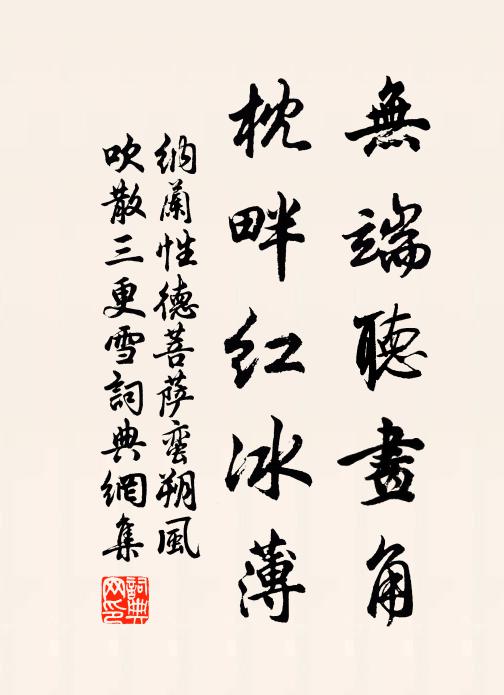 無端聽畫角
枕畔紅冰薄
納蘭性德菩薩蠻朔風
吹散三更雪詞典網集
詞典
网印